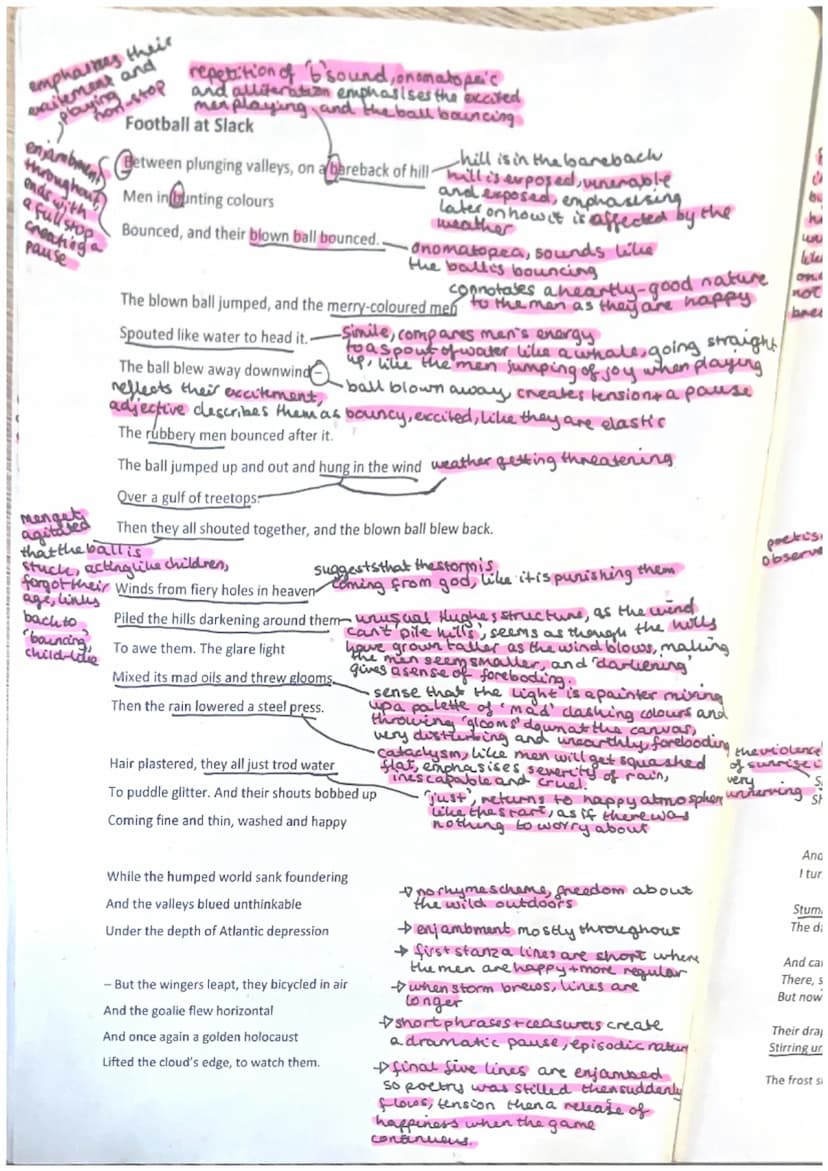 emphasizes their
excitement and
playing
non-stop
repetition of 'b' sound, onomatopeic
and alliteration emphasises the excited
men playing, and the ball bouncing
Football at Slack
enjambment
throughout,
ends with
a full stop
creating a
pause
Between plunging valleys, on a bareback of hill
Men in bunting colours
Bounced, and their blown ball bounced.
hill is in the bareback
hill is exposed, vunerable
and exposed, emphasising
later on how it is affected by the
weather
onomatopea, sounds like
the ball is bouncing
connotates a heartly-good nature
to the men as they are happy
The blown ball jumped, and the merry-coloured men
Spouted like water to head it.
Simile, compares men's energy
to a spout of water like a whale, going straight
up, like the men jumping of joy when playing
The ball blew away downwind –
ball blown away, creates tension + a pause
reflects their excitement,
adjective describes them as bouncy, excited, like they are elastic
The rubbery men bounced after it.
The ball jumped up and out and hung in the wind
weather getting threatening
Over a gulf of treetops.
Then they all shouted together, and the blown ball blew back.
men get
agitated
that the ball is
stuck, acting like children,
forgot their
age, links
back to
'bouncing',
child-like
suggests that the storm is
coming from god, like it is punishing them
Winds from fiery holes in heaven
Piled the hills darkening around them
To awe them. The glare light
Mixed its mad oils and threw glooms.
Then the rain lowered a steel press.
unusual Hughes structure, as the wind
can't 'pile hills', seems as though the hills
have grown taller as the wind blows, making
the men seem smaller, and 'darkening'
gives a sense of foreboding.
sense that the light is a painter mixing
up a palette of 'mad' clashing colours and
throwing 'glooms' down at the canvas,
very disturbing and unearthly, foreboding
cataclysm, like men will get squashed
flat, emphasises severity of rain,
inescapable and cruel.
Hair plastered, they all just trod water
To puddle glitter. And their shouts bobbed up
Coming fine and thin, washed and happy
'just', returns to happy atmospher
like the start, as if there was
nothing to worry about
While the humped world sank foundering
And the valleys blued unthinkable
Under the depth of Atlantic depression
– But the wingers leapt, they bicycled in air
And the goalie flew horizontal
And once again a golden holocaust
Lifted the cloud's edge, to watch them.
→ no rhyme scheme, freedom about
the wild outdoors
→ enjambment mostly throughout
→ first stanza lines are short where
the men are happy + more regular
→ when storm brews, lines are
longer
→ short phrases + ceasuras create
a dramatic pause, episodic nature
→ final five lines are enjambed
so poetry was stilled then suddenly
flows, tension then a release of
happiness when the game
continues.
not
poet is
observe
the violence
of sunrise i
very
unnerving
And
I tur
Stum
The da
And ca
There, s
But now
Their dra
Stirring ur
The frost s